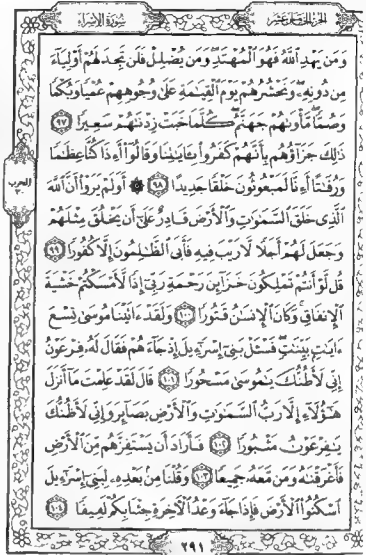 سورة الإسراء
الجزء الخامس عشر
وَمَن يَهْدِ اللَّهُ فَهُوَ الْمُهْتَدِ وَمَن يُضْلِلْ فَلَن تَجِدَ لَهُمْ أَوْلِيَاءَ
مِن دُونِهِ وَنَحْشُرُهُمْ يَوْمَ الْقِيَٰمَةِ عَلَىٰ وُجُوهِهِمْ عُمْيًا وَبُكْمًا
وَصُمًّا مَّأْوَىٰهُمْ جَهَنَّمُ كُلَّمَا خَبَتْ زِدْنَٰهُمْ سَعِيرًا ٩٧
ذَٰلِكَ جَزَآؤُهُم بِأَنَّهُمْ كَفَرُوا۟ بِـَٔايَٰتِنَا وَقَالُوٓا۟ أَءِذَا كُنَّا عِظَٰمًا
وَرُفَٰتًا أَءِنَّا لَمَبْعُوثُونَ خَلْقًا جَدِيدًا ٩٨ ۞ أَوَلَمْ يَرَوْا۟ أَنَّ ٱللَّهَ
ٱلَّذِى خَلَقَ ٱلسَّمَٰوَٰتِ وَٱلْأَرْضَ قَادِرٌ عَلَىٰٓ أَن يَخْلُقَ مِثْلَهُمْ
وَجَعَلَ لَهُمْ أَجَلًا لَّا رَيْبَ فِيهِ فَأَبَى ٱلظَّٰلِمُونَ إِلَّا كُفُورًا ٩٩
قُل لَّوْ أَنتُمْ تَمْلِكُونَ خَزَآئِنَ رَحْمَةِ رَبِّىٓ إِذًا لَّأَمْسَكْتُمْ خَشْيَةَ
ٱلْإِنفَاقِ وَكَانَ ٱلْإِنسَٰنُ قَتُورًا ١٠٠ وَلَقَدْ ءَاتَيْنَا مُوسَىٰ تِسْعَ
ءَايَٰتٍۭ بَيِّنَٰتٍ فَسْـَٔلْ بَنِىٓ إِسْرَٰٓءِيلَ إِذْ جَآءَهُمْ فَقَالَ لَهُۥ فِرْعَوْنُ
إِنِّى لَأَظُنُّكَ يَٰمُوسَىٰ مَسْحُورًا ١٠١ قَالَ لَقَدْ عَلِمْتَ مَآ أَنزَلَ
هَٰٓؤُلَآءِ إِلَّا رَبُّ ٱلسَّمَٰوَٰتِ وَٱلْأَرْضِ بَصَآئِرَ وَإِنِّى لَأَظُنُّكَ
يَٰفِرْعَوْنُ مَثْبُورًا ١٠٢ فَأَرَادَ أَن يَسْتَفِزَّهُم مِّنَ ٱلْأَرْضِ
فَأَغْرَقْنَٰهُ وَمَن مَّعَهُۥ جَمِيعًا ١٠٣ وَقُلْنَا مِنۢ بَعْدِهِۦ لِبَنِىٓ إِسْرَٰٓءِيلَ
ٱسْكُنُوا۟ ٱلْأَرْضَ فَإِذَا جَآءَ وَعْدُ ٱلْءَاخِرَةِ جِئْنَا بِكُمْ لَفِيفًا ١٠٤
الحزب
٣٠
٢٩١